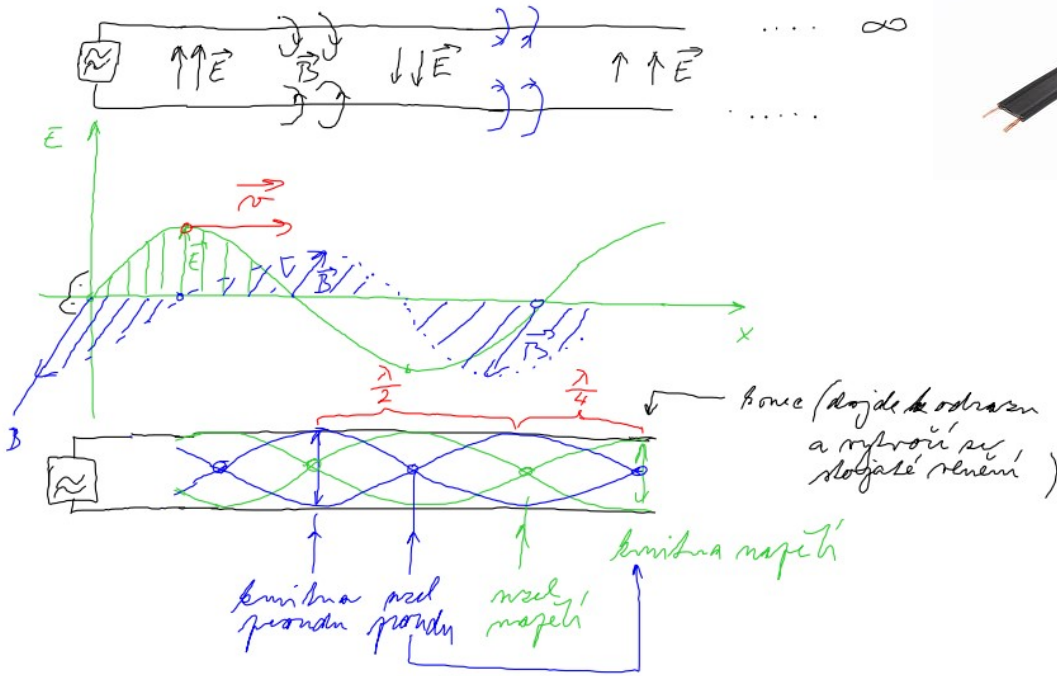 .... ∞
E⃗ B⃗ E⃗ E⃗
.....
E
v⃗
E⃗ B⃗
x
B⃗
λ/2 λ/4
B
konec (dojde k odrazu
a vytvoří se
stojaté vlnění)
kmitna napětí
kmitna uzel uzel
proudu proudu napětí